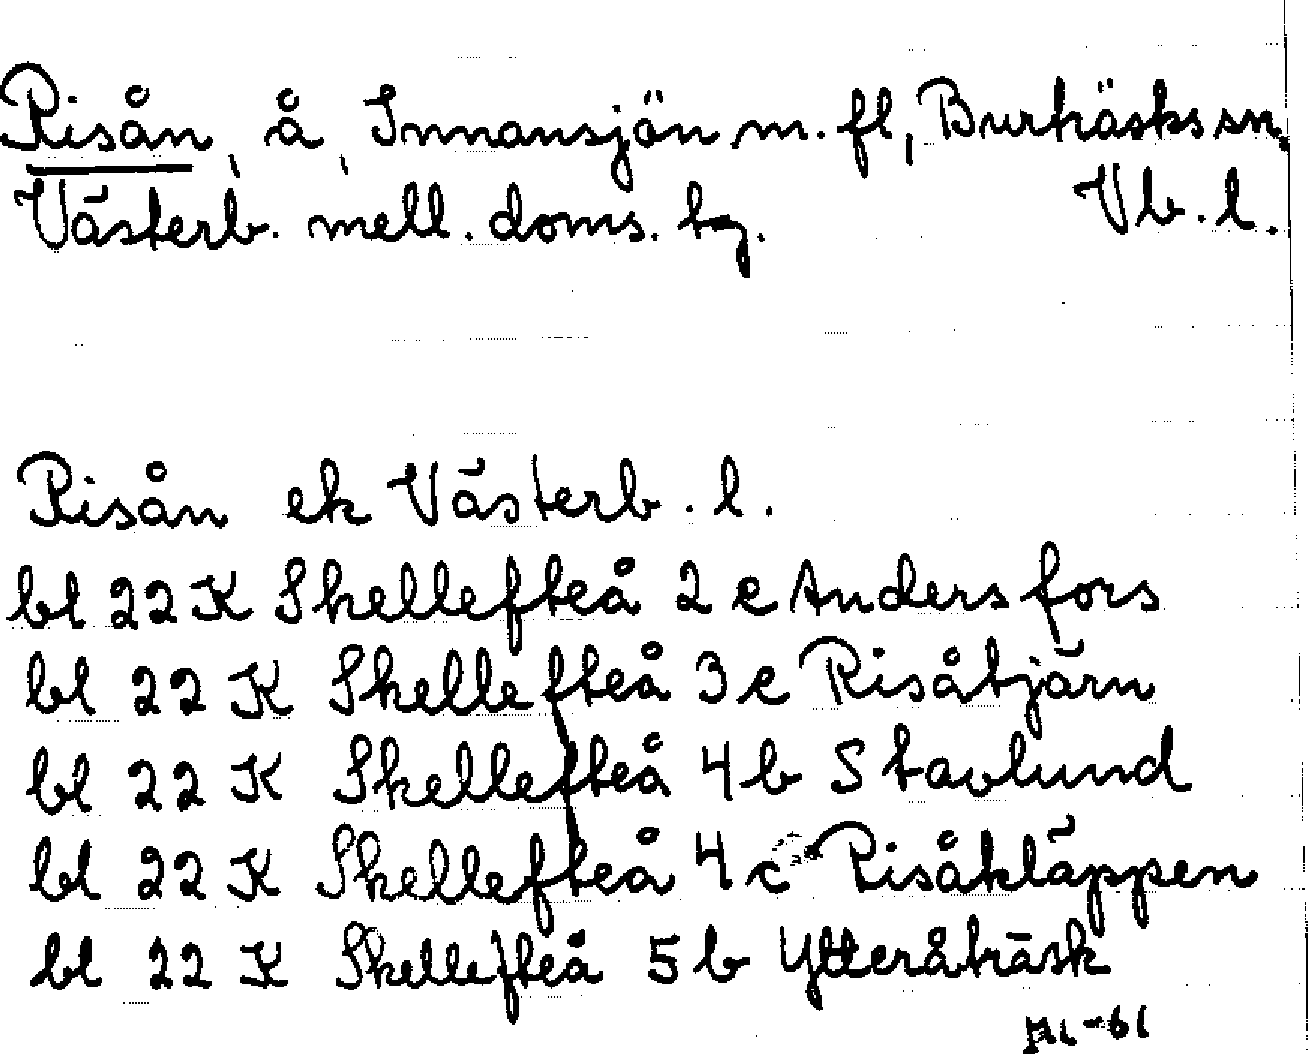 Risån, å, Innansjön m. fl, Burträsks sn,
Västerb. mell. doms. tg. Vb. l.
Risån ek Västerb. l.
bl 22 K Skellefteå 2 e Andersfors
bl 22 K Skellefteå 3 e Risåtjärn
bl 22 K Skellefteå 4 b Stavlund
bl 22 K Skellefteå 4 c Risåkläppen
bl 22 K Skellefteå 5 b Ytteråträsk